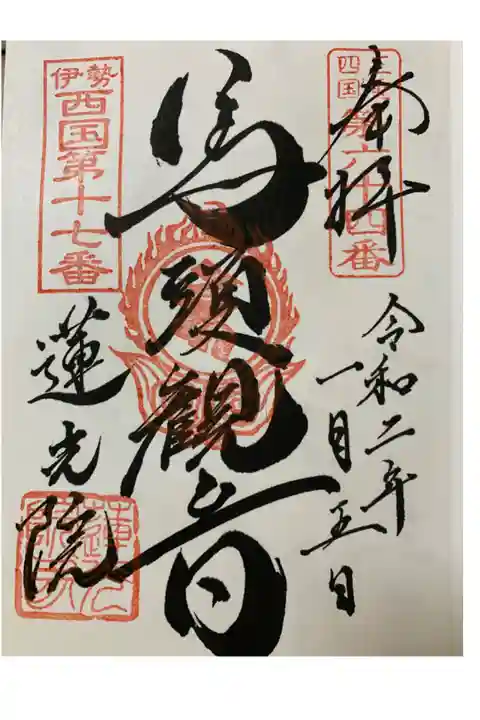 奉拝
四国第六十四番
令和二年
一月五日
馬頭観音
伊勢
西国第十七番
蓮光院